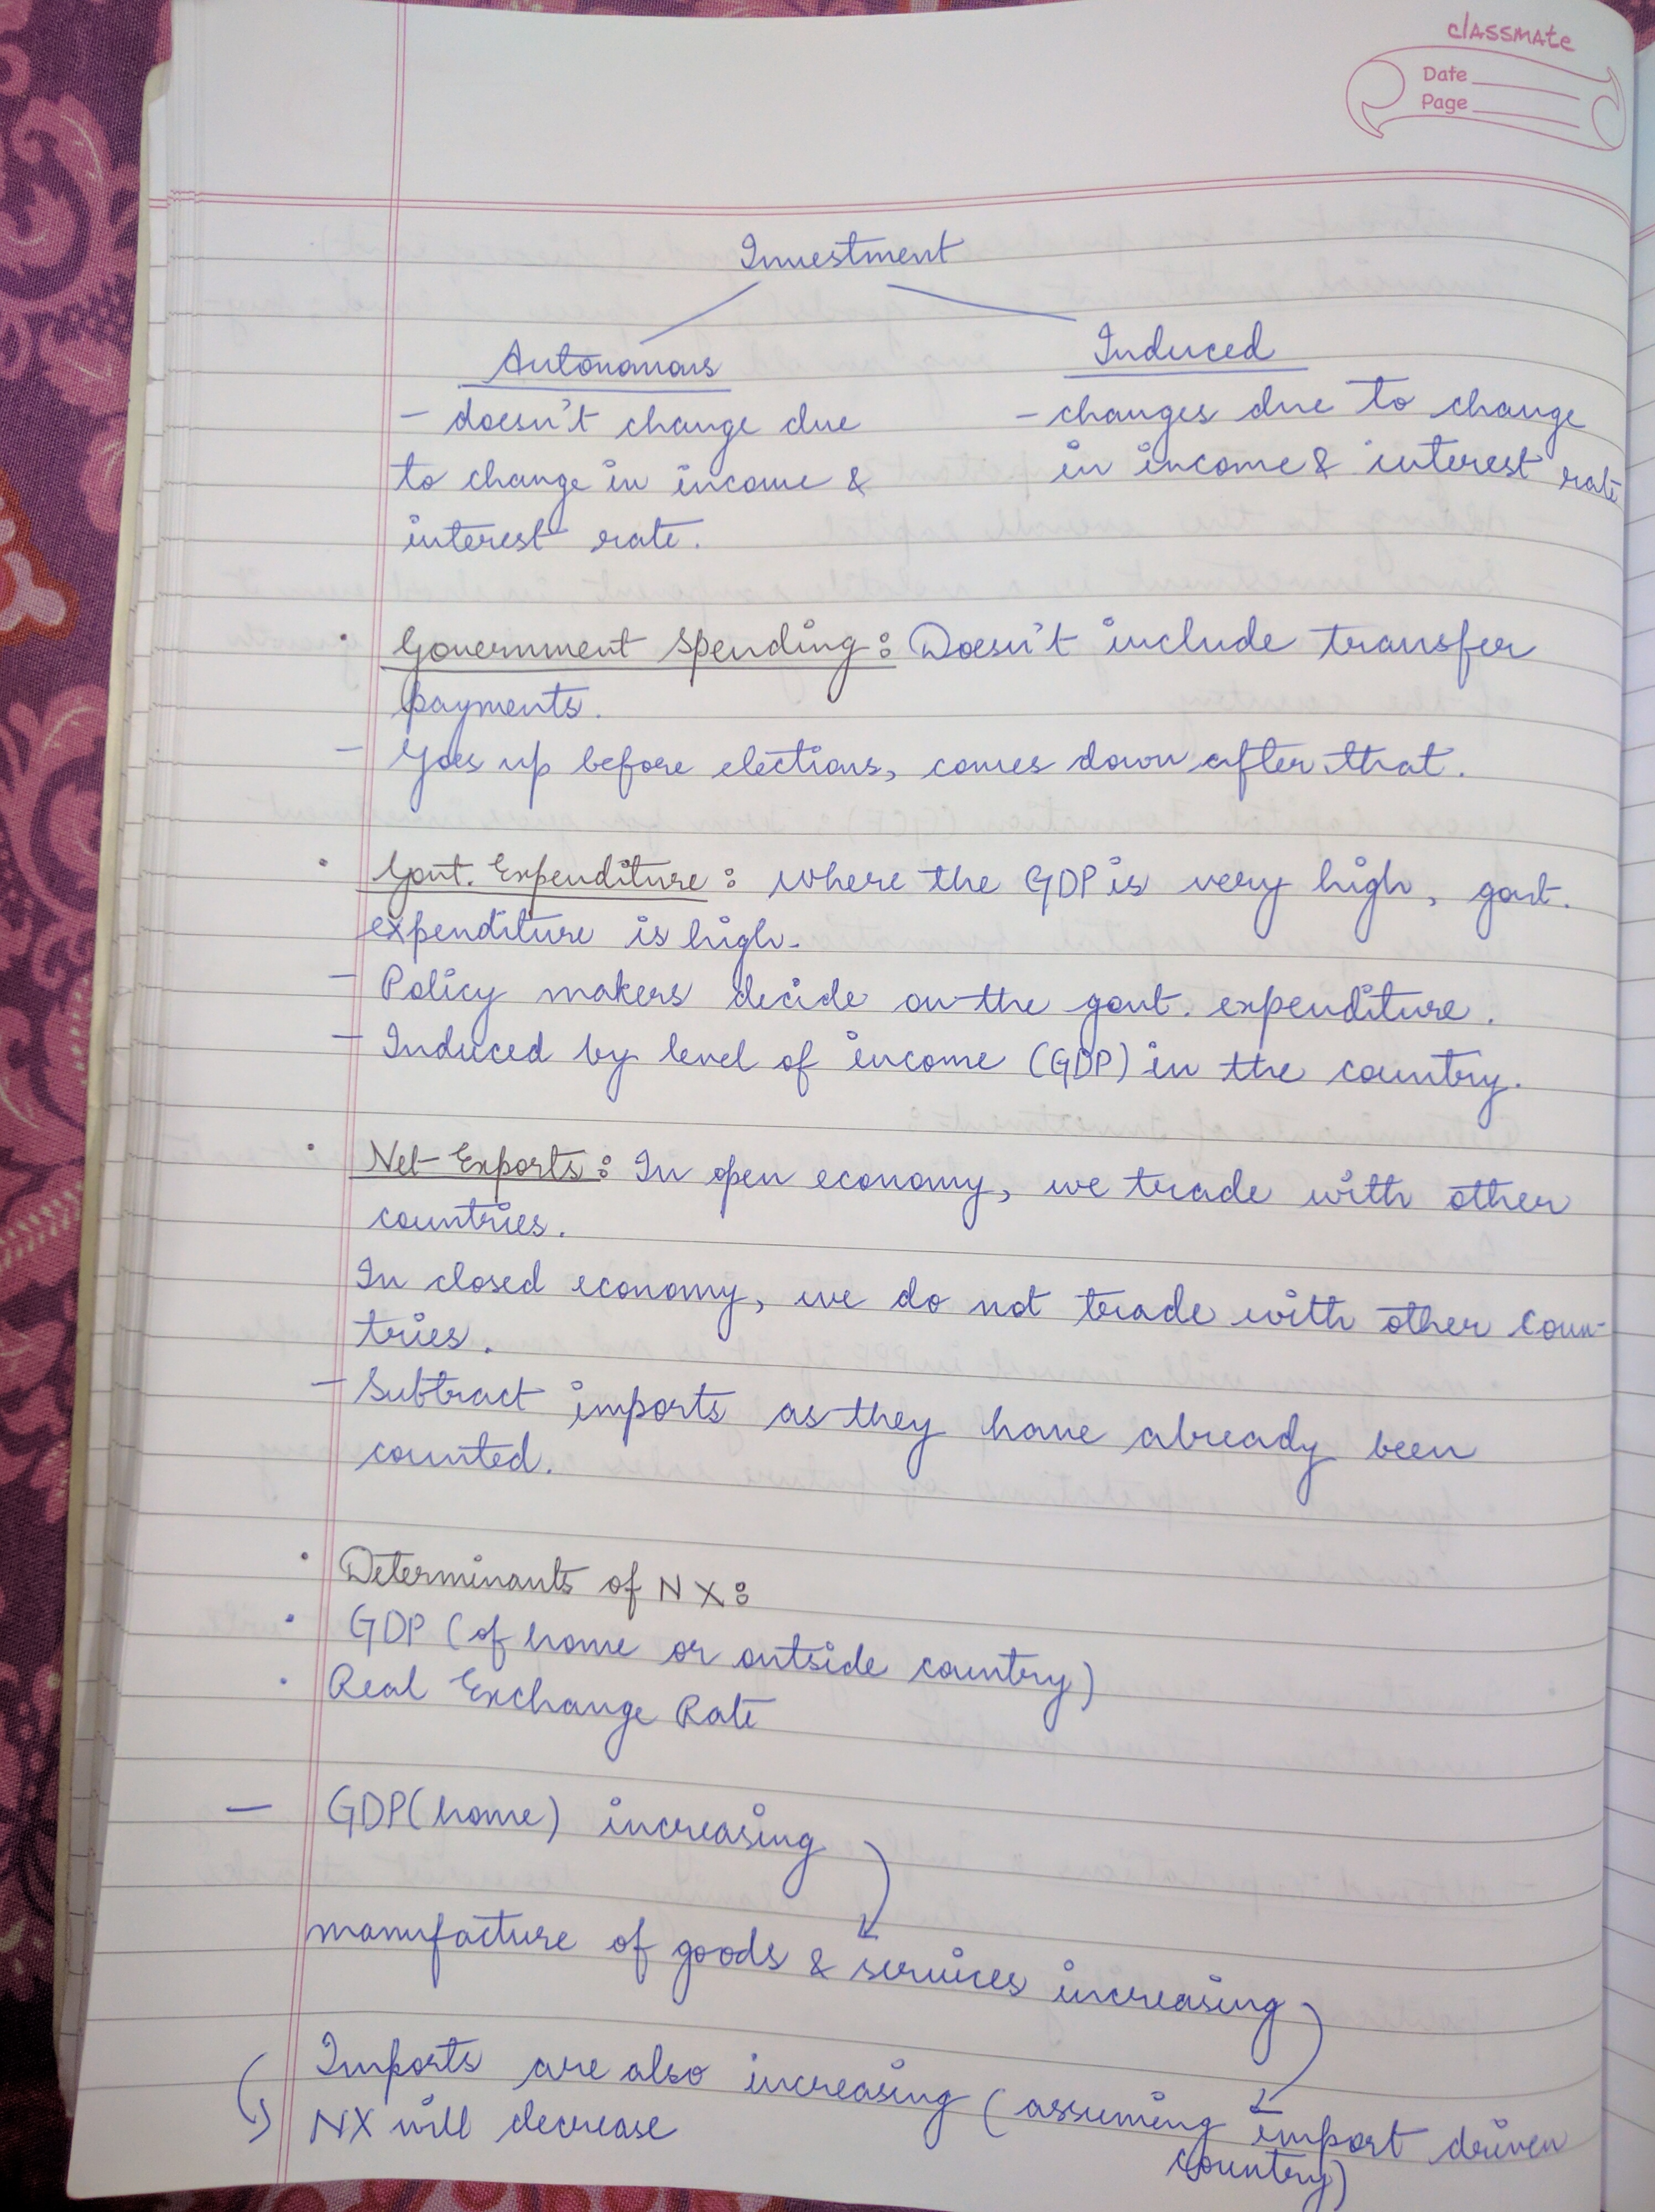 classmate
Date
Page
Investment
Autonomous
Induced
- doesn't change due
to change in income &
interest rate.
- changes due to change
in income & interest rate
• Government spending: Doesn't include transfer
payments.
- Goes up before elections, comes down after that.
• Govt. Expenditure: where the GDP is very high, govt.
expenditure is high.
- Policy makers decide on the govt. expenditure.
- Induced by level of income (GDP) in the country.
• Net Exports: In open economy, we trade with other
countries.
In closed economy, we do not trade with other coun-
tries.
- Subtract imports as they have already been
counted.
• Determinants of NX:
• GDP (of home or outside country)
• Real Exchange Rate
- GDP(home) increasing
manufacture of goods & services increasing
Imports are also increasing (assuming import driven
country)
NX will decrease